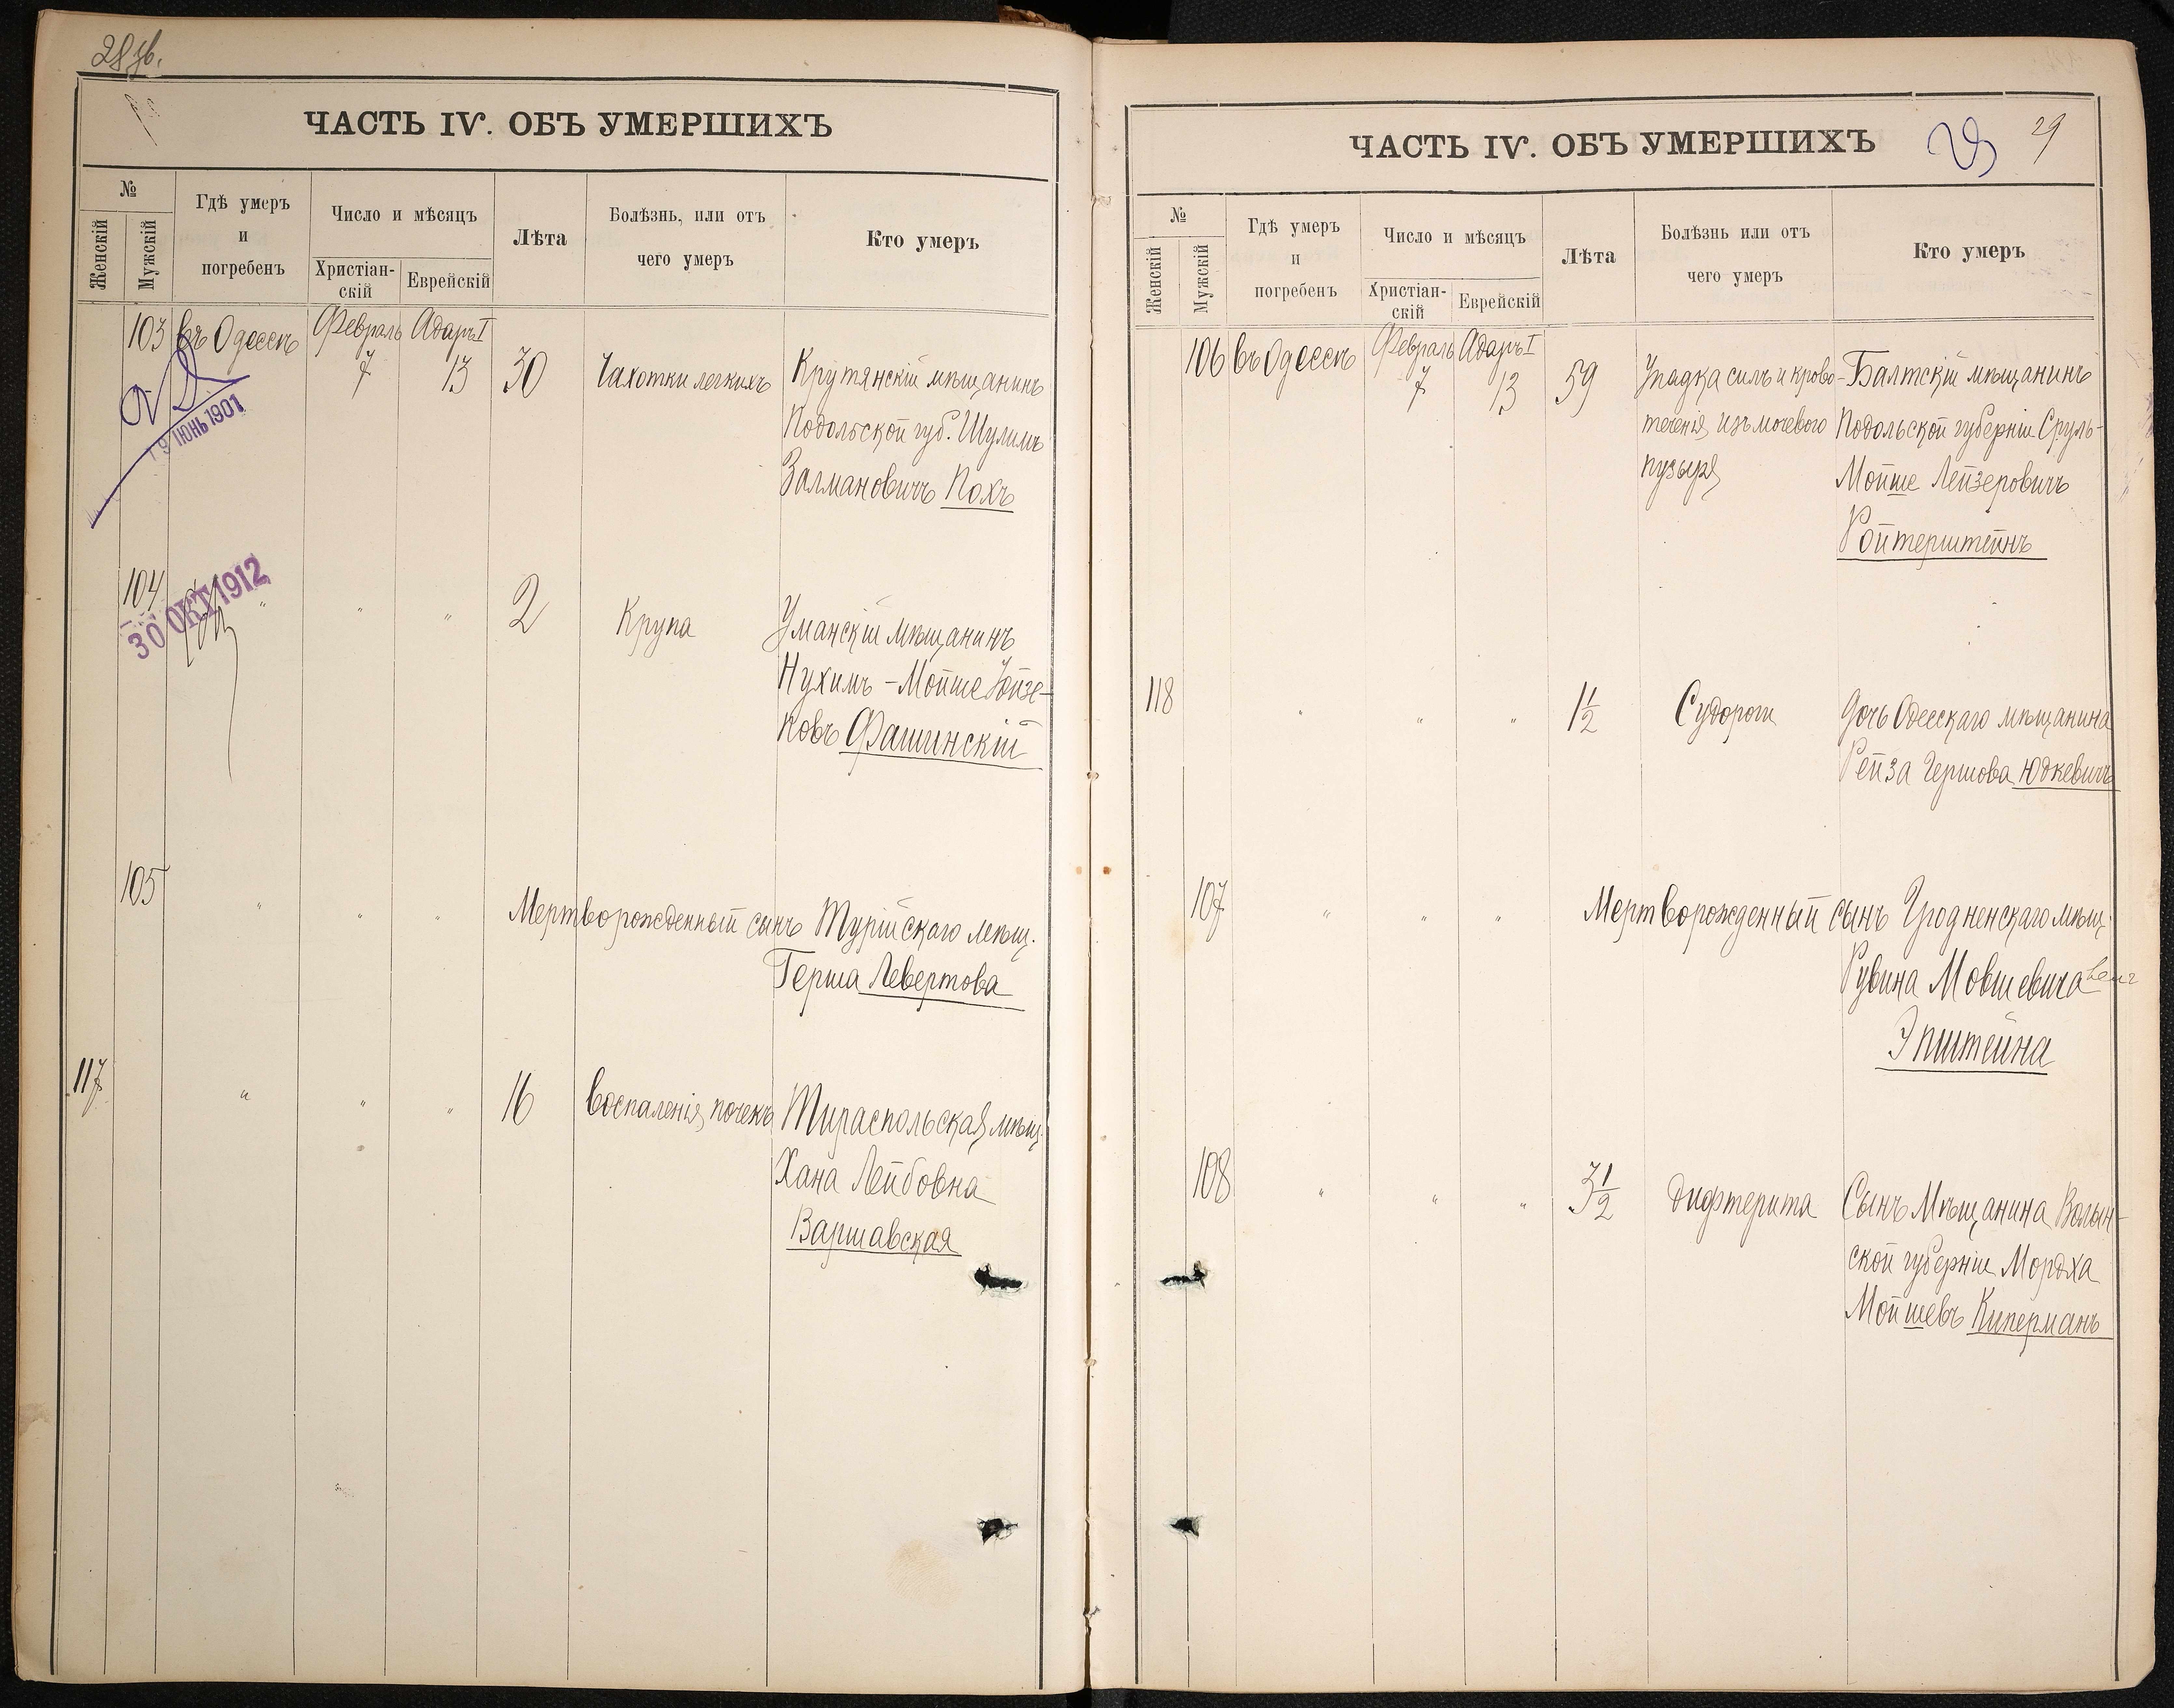 28 об.
ЧАСТЬ IV. ОБЪ УМЕРШИХЪ
№
Женскій
Мужскій
Гдѣ умеръ
и
погребенъ
Число и мѣсяцъ
Христіан-
скій
Еврейскій
Лѣта
Болѣзнь, или отъ
чего умеръ
Кто умеръ
103 въ Одессѣ Февраль Адаръ I
7 13 30 Чахотки легкихъ Крутянскій мѣщанинъ
Подольской губ. Шулимъ
Залмановичъ Кохъ
9 ІЮНЬ 1901
104 " " " 2 Крупа Уманскій мѣщанинъ
30 ОКТ 1912
Нухимъ-Мойше
ковъ Фашинскій
105 " " " Мертворожденный сынъ Турійскаго мѣщ.
Герша Левертова
117 " " " 16 Воспаленія почекъ Тираспольская мѣщ.
Хана Лейбовна
Варшавская
29
ЧАСТЬ IV. ОБЪ УМЕРШИХЪ
№
Женскій
Мужскій
Гдѣ умеръ
и
погребенъ
Число и мѣсяцъ
Христіан-
скій
Еврейскій
Лѣта
Болѣзнь или отъ
чего умеръ
Кто умеръ
106 въ Одессѣ Февраль Адаръ I
7 13 59 Упадка силъ и крово- Балтскій мѣщанинъ
теченія изъ мочевого Подольской губерніи Сруль-
пузыря Мойше Лейзеровичъ
Ройтерштейнъ
118 " " " 1 1/2 Судороги Дочь Одесскаго мѣщанина
Рейза Гершова Юдкевичъ
107 " " " Мертворожденный сынъ Гродненскаго мѣщ.
Рувина Мовшевича
Эпштейна
108 " " " 3 1/2 Дифтерита Сынъ Мѣщанина Волын-
ской губерніи Мордха
Мойшевъ Киперманъ